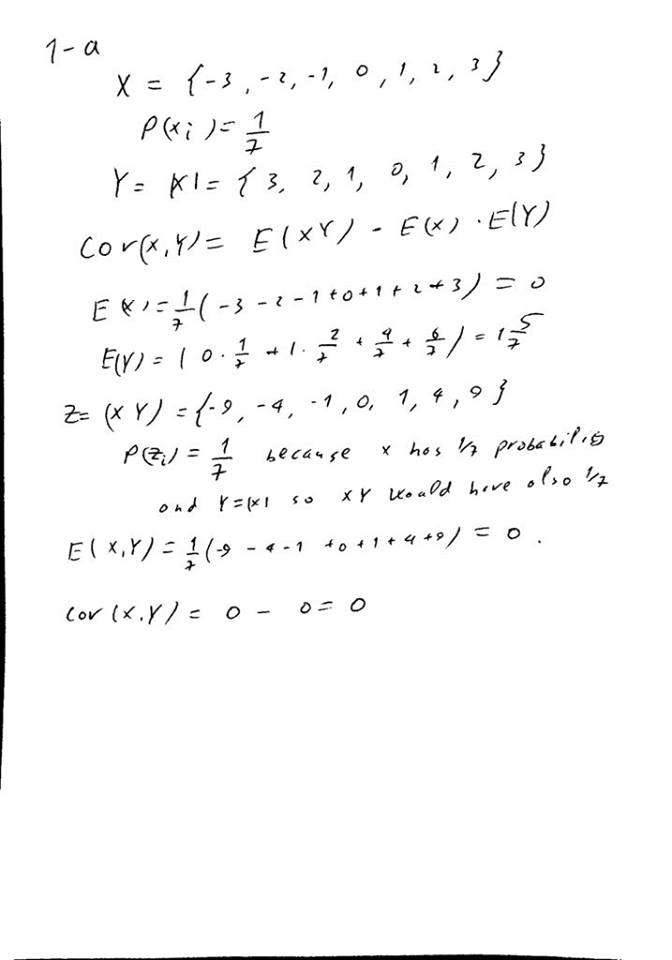 1-a
X = {-3, -2, -1, 0, 1, 2, 3}
P(xi) = 1/7
Y = |X| = {3, 2, 1, 0, 1, 2, 3}
Cov(X,Y) = E(XY) - E(X) · E(Y)
E(X) = 1/7 (-3 -2 -1 +0 +1 +2 +3) = 0
E(Y) = (0 · 1/7 + 1 · 2/7 + 4/7 + 6/7) = 1 5/7
Z = (XY) = {-9, -4, -1, 0, 1, 4, 9}
P(Zi) = 1/7 because x has 1/7 probability
and Y=|x| so XY would have also 1/7
E(X,Y) = 1/7 (-9 -4 -1 +0 +1 +4 +9) = 0.
Cov(X.Y) = 0 - 0 = 0